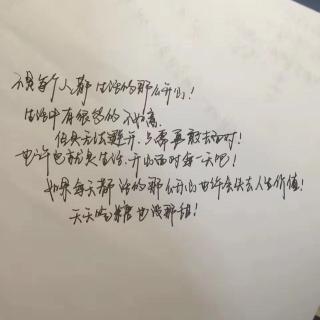 不是每个人都生活的那么开心！
生活中有很多的不如意，
但是无法避开，只需要勇敢去面对！
也许这就是生活，开心面对每一天吧！
如果每天都活的那么开心也许会失去人生价值！
天天吃糖也没那甜！